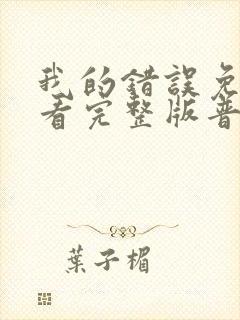 我的錯誤免
看完整版普
葉子楣